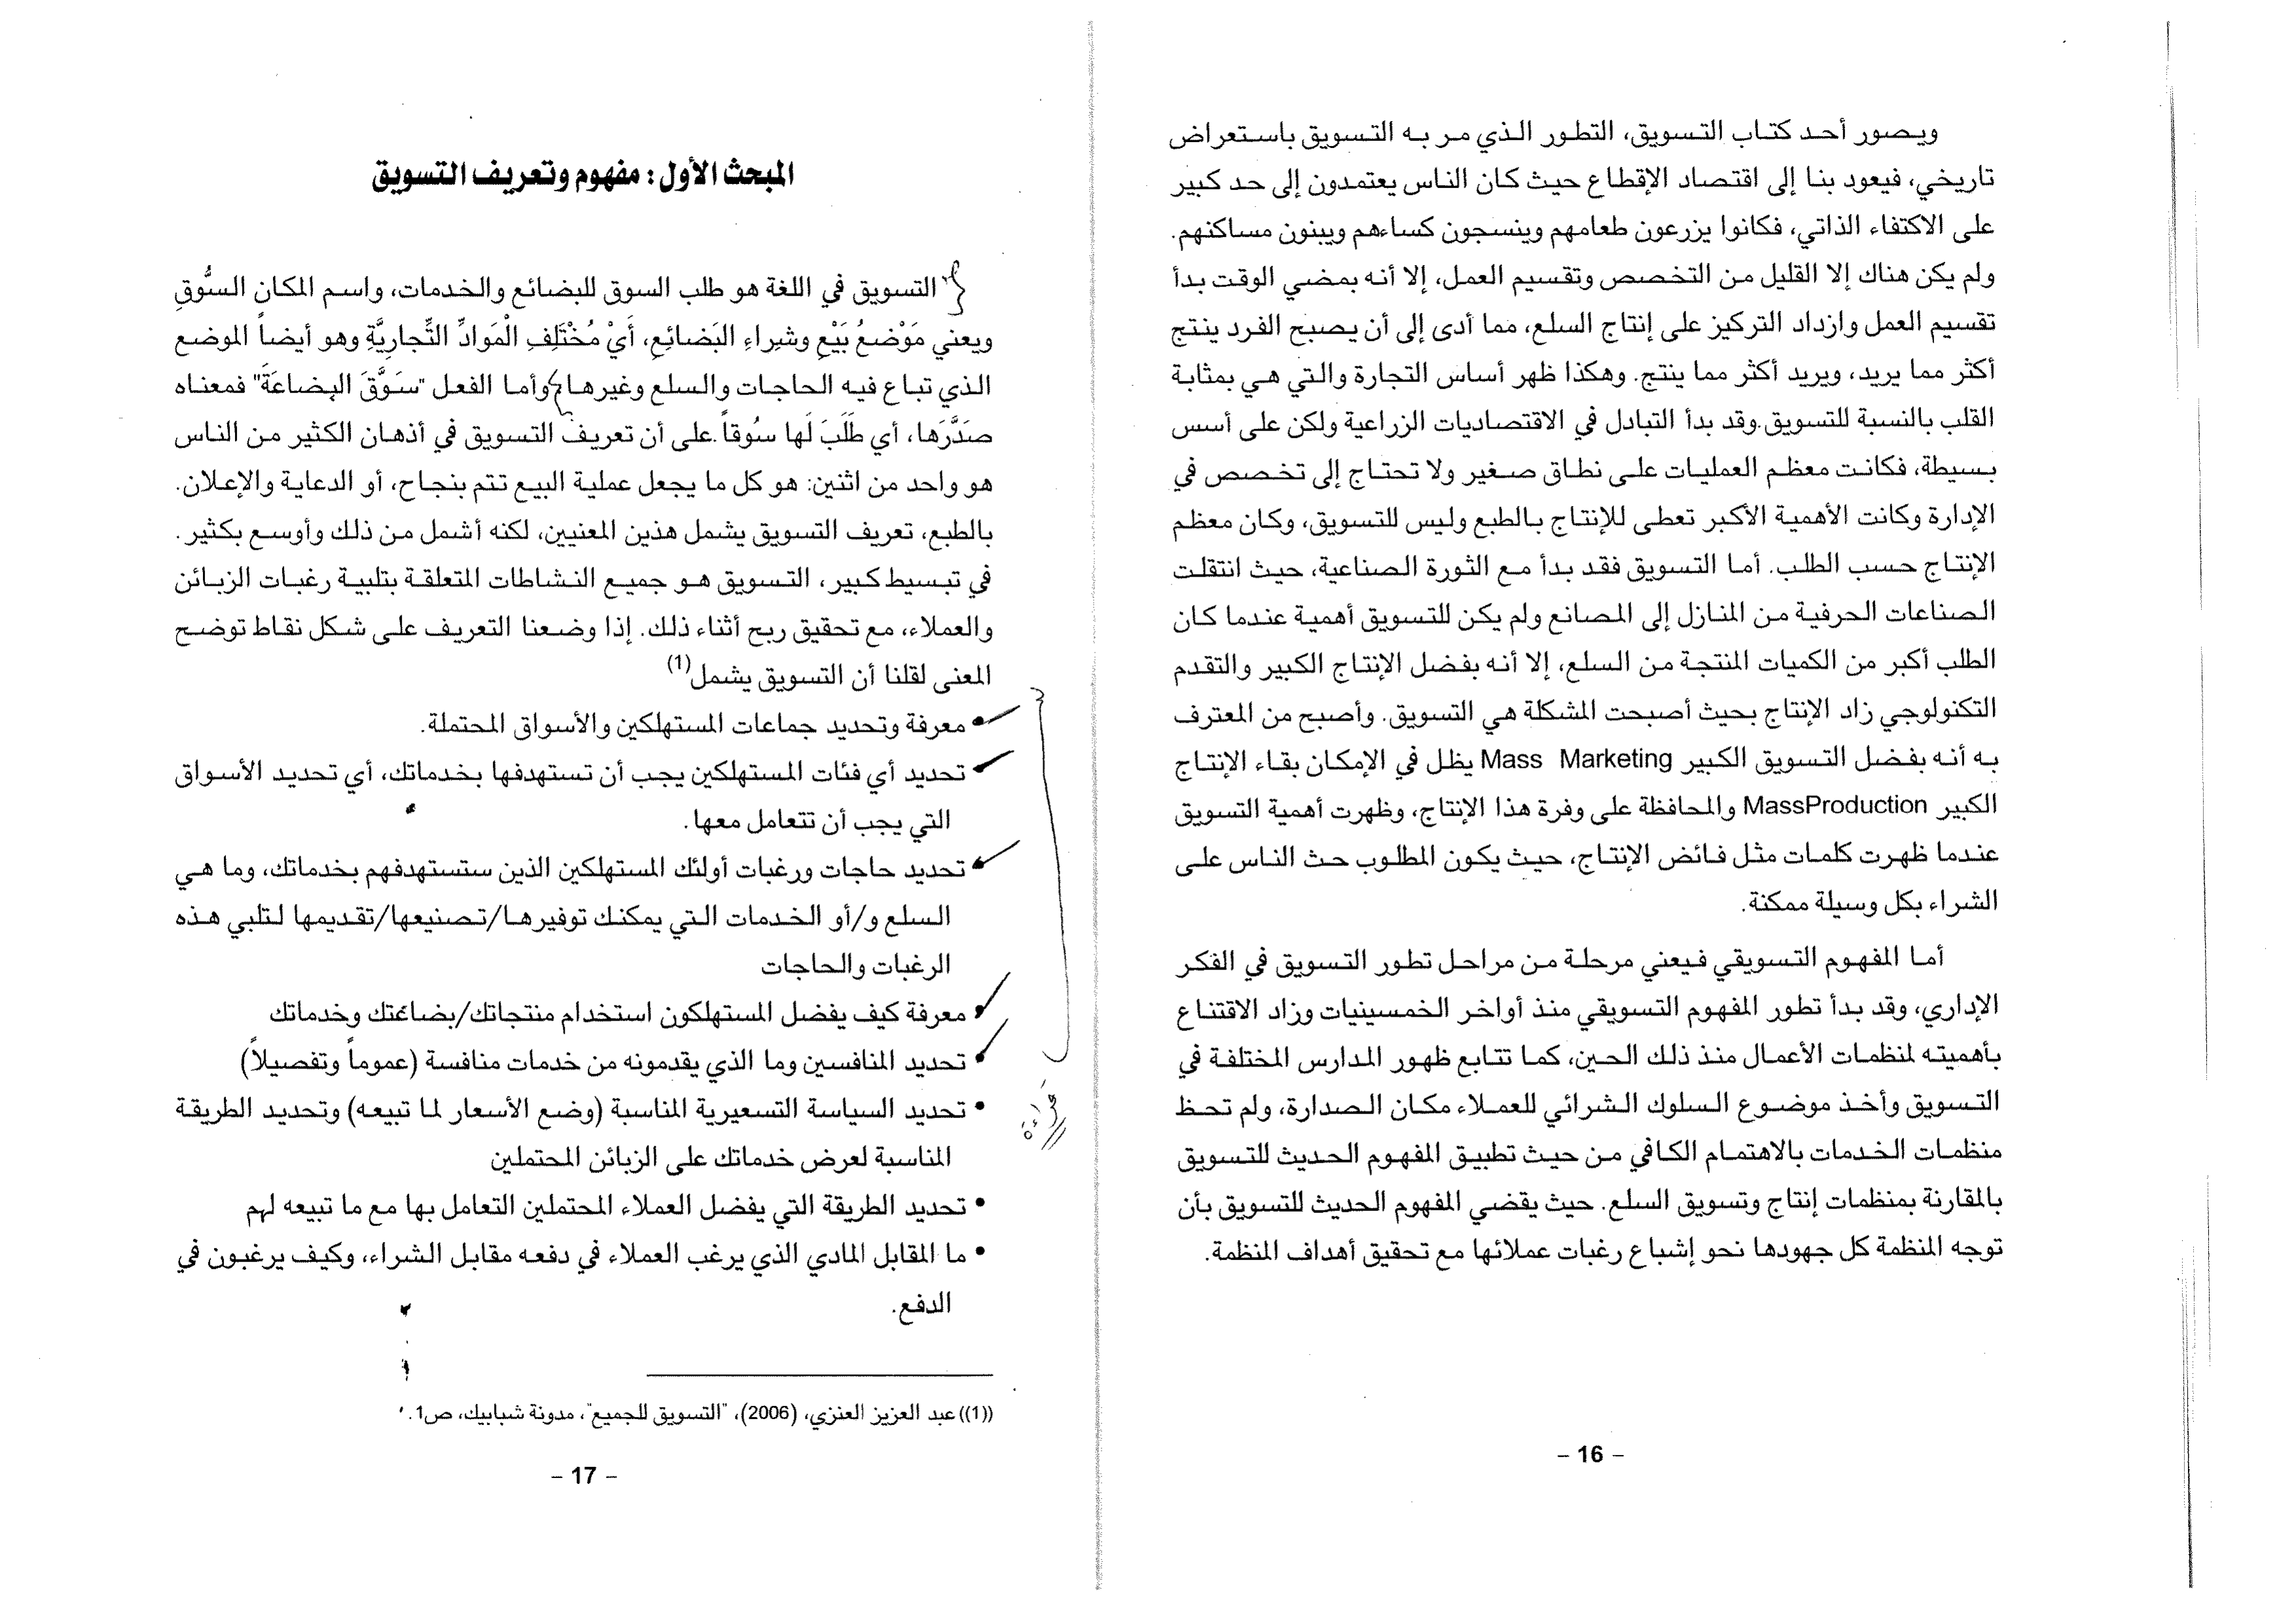 ويصور أحد كتاب التسويق، التطور الذي مر به التسويق باستعراض
تاريخي، فيعود بنا إلى اقتصاد الإقطاع حيث كان الناس يعتمدون إلى حد كبير
على الاكتفاء الذاتي، فكانوا يزرعون طعامهم وينسجون كساءهم ويبنون مساكنهم.
ولم يكن هناك إلا القليل من التخصص وتقسيم العمل، إلا أنه بمضي الوقت بدأ
تقسيم العمل وازداد التركيز على إنتاج السلع، مما أدى إلى أن يصبح الفرد ينتج
أكثر مما يريد، ويريد أكثر مما ينتج. وهكذا ظهر أساس التجارة والتي هي بمثابة
القلب بالنسبة للتسويق.وقد بدأ التبادل في الاقتصاديات الزراعية ولكن على أسس
بسيطة، فكانت معظم العمليات على نطاق صغير ولا تحتاج إلى تخصص في
الإدارة وكانت الأهمية الأكبر تعطى للإنتاج بالطبع وليس للتسويق، وكان معظم
الإنتاج حسب الطلب. أما التسويق فقد بدأ مع الثورة الصناعية، حيث انتقلت
الصناعات الحرفية من المنازل إلى المصانع ولم يكن للتسويق أهمية عندما كان
الطلب أكبر من الكميات المنتجة من السلع، إلا أنه بفضل الإنتاج الكبير والتقدم
التكنولوجي زاد الإنتاج بحيث أصبحت المشكلة هي التسويق. وأصبح من المعترف
به أنه بفضل التسويق الكبير Mass Marketing يظل في الإمكان بقاء الإنتاج
الكبير MassProduction والمحافظة على وفرة هذا الإنتاج، وظهرت أهمية التسويق
عندما ظهرت كلمات مثل فائض الإنتاج، حيث يكون المطلوب حث الناس على
الشراء بكل وسيلة ممكنة.
أما المفهوم التسويقي فيعني مرحلة من مراحل تطور التسويق في الفكر
الإداري، وقد بدأ تطور المفهوم التسويقي منذ أواخر الخمسينيات وزاد الاقتناع
بأهميته لمنظمات الأعمال منذ ذلك الحين، كما تتابع ظهور المدارس المختلفة في
التسويق وأخذ موضوع السلوك الشرائي للعملاء مكان الصدارة، ولم تحظ
منظمات الخدمات بالاهتمام الكافي من حيث تطبيق المفهوم الحديث للتسويق
بالمقارنة بمنظمات إنتاج وتسويق السلع. حيث يقضي المفهوم الحديث للتسويق بأن
توجه المنظمة كل جهودها نحو إشباع رغبات عملائها مع تحقيق أهداف المنظمة.
– 16 –
المبحث الأول: مفهوم وتعريف التسويق
التسويق في اللغة هو طلب السوق للبضائع والخدمات، واسم المكان السُّوقِ
ويعني مَوْضعُ بَيْعٍ وشِراءِ البَضائِعِ، أَيْ مُخْتَلِفِ الْمَوادِّ التِّجارِيَّةِ وهو أيضاً الموضع
الذي تباع فيه الحاجات والسلع وغيرها وأما الفعل "سَوَّقَ البِضاعَةَ" فمعناه
صَدَّرَها، أي طَلَبَ لَها سُوقاً.على أن تعريف التسويق في أذهان الكثير من الناس
هو واحد من اثنين: هو كل ما يجعل عملية البيع تتم بنجاح، أو الدعاية والإعلان.
بالطبع، تعريف التسويق يشمل هذين المعنيين، لكنه أشمل من ذلك وأوسع بكثير.
في تبسيط كبير، التسويق هو جميع النشاطات المتعلقة بتلبية رغبات الزبائن
والعملاء، مع تحقيق ربح أثناء ذلك. إذا وضعنا التعريف على شكل نقاط توضح
المعنى لقلنا أن التسويق يشمل(1)
• معرفة وتحديد جماعات المستهلكين والأسواق المحتملة.
• تحديد أي فئات المستهلكين يجب أن تستهدفها بخدماتك، أي تحديد الأسواق
التي يجب أن تتعامل معها.
• تحديد حاجات ورغبات أولئك المستهلكين الذين ستستهدفهم بخدماتك، وما هي
السلع و/أو الخدمات التي يمكنك توفيرها/تصنيعها/تقديمها لتلبي هذه
الرغبات والحاجات
• معرفة كيف يفضل المستهلكون استخدام منتجاتك/بضاعتك وخدماتك
• تحديد المنافسين وما الذي يقدمونه من خدمات منافسة (عموماً وتفصيلاً)
• تحديد السياسة التسعيرية المناسبة (وضع الأسعار لما تبيعه) وتحديد الطريقة
المناسبة لعرض خدماتك على الزبائن المحتملين
• تحديد الطريقة التي يفضل العملاء المحتملين التعامل بها مع ما تبيعه لهم
• ما المقابل المادي الذي يرغب العملاء في دفعه مقابل الشراء، وكيف يرغبون في
الدفع.
((1)) عبد العزيز العنزي، (2006)، "التسويق للجميع"، مدونة شبابيك، ص1.
– 17 –